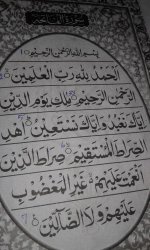 بِسْمِ اللّٰهِ الرَّحْمٰنِ الرَّحِيْمِ
اَلْحَمْدُ لِلّٰهِ رَبِّ الْعٰلَمِيْنَ
الرَّحْمٰنِ الرَّحِيْمِ مٰلِكِ يَوْمِ الدِّيْنِ
اِيَّاكَ نَعْبُدُ وَاِيَّاكَ نَسْتَعِيْنُ اِهْدِنَا
الصِّرَاطَ الْمُسْتَقِيْمَ صِرَاطَ الَّذِيْنَ
اَنْعَمْتَ عَلَيْهِمْ غَيْرِ الْمَغْضُوْبِ
عَلَيْهِمْ وَلَا الضَّآلِّيْنَ